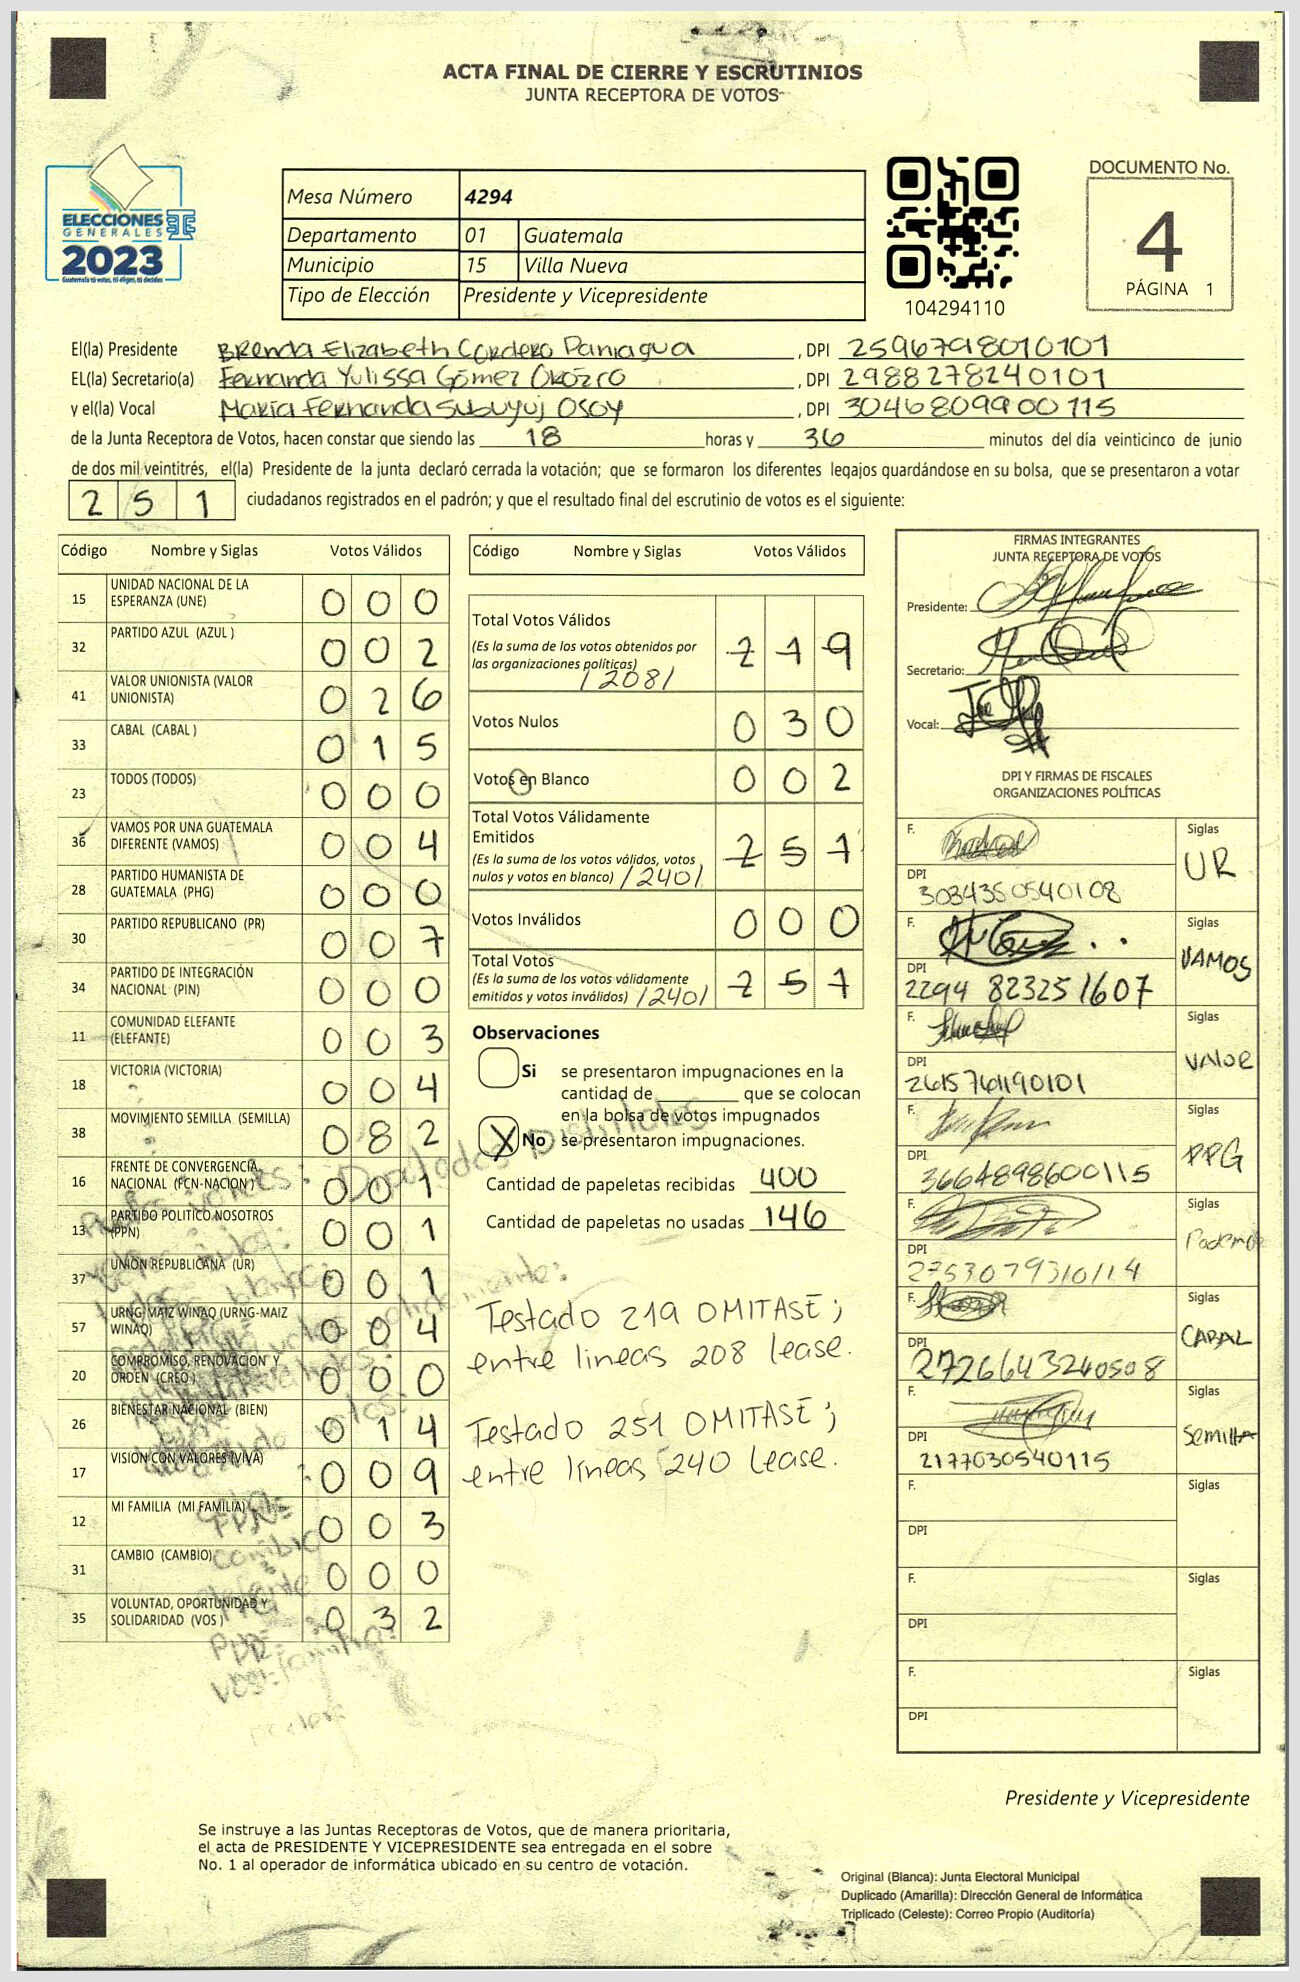 ACTA FINAL DE CIERRE Y ESCRUTINIOS
JUNTA RECEPTORA DE VOTOS
ELECCIONES
GENERALES
2023
Guatemala tú votas, tú eliges, tú decides
Mesa Número 4294
Departamento 01 Guatemala
Municipio 15 Villa Nueva
Tipo de Elección Presidente y Vicepresidente
104294110
DOCUMENTO No.
4
PÁGINA 1
El(la) Presidente Brenda Elizabeth Cordero Paniagua, DPI 2596798010101
EL(la) Secretario(a) Fernanda Yulissa Gómez Orozco, DPI 2988278240101
y el(la) Vocal María Fernanda Subuyuj Osoy, DPI 3046809900115
de la Junta Receptora de Votos, hacen constar que siendo las 18 horas y 36 minutos del día veinticinco de junio
de dos mil veintitrés, el(la) Presidente de la junta declaró cerrada la votación; que se formaron los diferentes legajos guardándose en su bolsa, que se presentaron a votar
251 ciudadanos registrados en el padrón; y que el resultado final del escrutinio de votos es el siguiente:
Código Nombre y Siglas Votos Válidos
15 UNIDAD NACIONAL DE LA ESPERANZA (UNE) 000
32 PARTIDO AZUL (AZUL ) 002
41 VALOR UNIONISTA (VALOR UNIONISTA) 026
33 CABAL (CABAL ) 015
23 TODOS (TODOS) 000
36 VAMOS POR UNA GUATEMALA DIFERENTE (VAMOS) 004
28 PARTIDO HUMANISTA DE GUATEMALA (PHG) 000
30 PARTIDO REPUBLICANO (PR) 007
34 PARTIDO DE INTEGRACIÓN NACIONAL (PIN) 000
11 COMUNIDAD ELEFANTE (ELEFANTE) 003
18 VICTORIA (VICTORIA) 004
38 MOVIMIENTO SEMILLA (SEMILLA) 082
16 FRENTE DE CONVERGENCIA NACIONAL (FCN-NACION ) 001
13 PARTIDO POLITICO NOSOTROS (PPN) 001
37 UNION REPUBLICANA (UR) 001
57 URNG MAIZ WINAQ (URNG-MAIZ WINAQ) 004
20 COMPROMISO, RENOVACION Y ORDEN (CREO ) 000
26 BIENESTAR NACIONAL (BIEN) 014
17 VISION CON VALORES (VIVA) 009
12 MI FAMILIA (MI FAMILIA) 003
31 CAMBIO (CAMBIO) 000
35 VOLUNTAD, OPORTUNIDAD Y SOLIDARIDAD (VOS ) 032
Código Nombre y Siglas Votos Válidos
Total Votos Válidos
(Es la suma de los votos obtenidos por
las organizaciones políticas) 219
/208/
Votos Nulos 030
Votos en Blanco 002
Total Votos Válidamente
Emitidos
(Es la suma de los votos válidos, votos
nulos y votos en blanco) /240/ 251
Votos Inválidos 000
Total Votos
(Es la suma de los votos válidamente
emitidos y votos inválidos) /240/ 251
Observaciones
Si se presentaron impugnaciones en la
cantidad de ________ que se colocan
en la bolsa de votos impugnados
X No se presentaron impugnaciones.
Cantidad de papeletas recibidas 400
Cantidad de papeletas no usadas 146
Testado 219 OMITASE;
entre lineas 208 lease.
Testado 251 OMITASE;
entre líneas 240 lease.
FIRMAS INTEGRANTES
JUNTA RECEPTORA DE VOTOS
Presidente:
Secretario:
Vocal:
DPI Y FIRMAS DE FISCALES
ORGANIZACIONES POLÍTICAS
F. Siglas UR
DPI 3084350540108
F. Siglas VAMOS
DPI 2294 823251607
F. Siglas VALOR
DPI 2615761190101
F. Siglas PPG
DPI 3664898600115
F. Siglas
DPI 2753079310114
F. Siglas CABAL
DPI 2726643240508
F. Siglas Semilla
DPI 2177030540115
F. Siglas
DPI
F. Siglas
DPI
F. Siglas
DPI
Presidente y Vicepresidente
Se instruye a las Juntas Receptoras de Votos, que de manera prioritaria,
el acta de PRESIDENTE Y VICEPRESIDENTE sea entregada en el sobre
No. 1 al operador de informática ubicado en su centro de votación.
Original (Blanca): Junta Electoral Municipal
Duplicado (Amarilla): Dirección General de Informática
Triplicado (Celeste): Correo Propio (Auditoría)